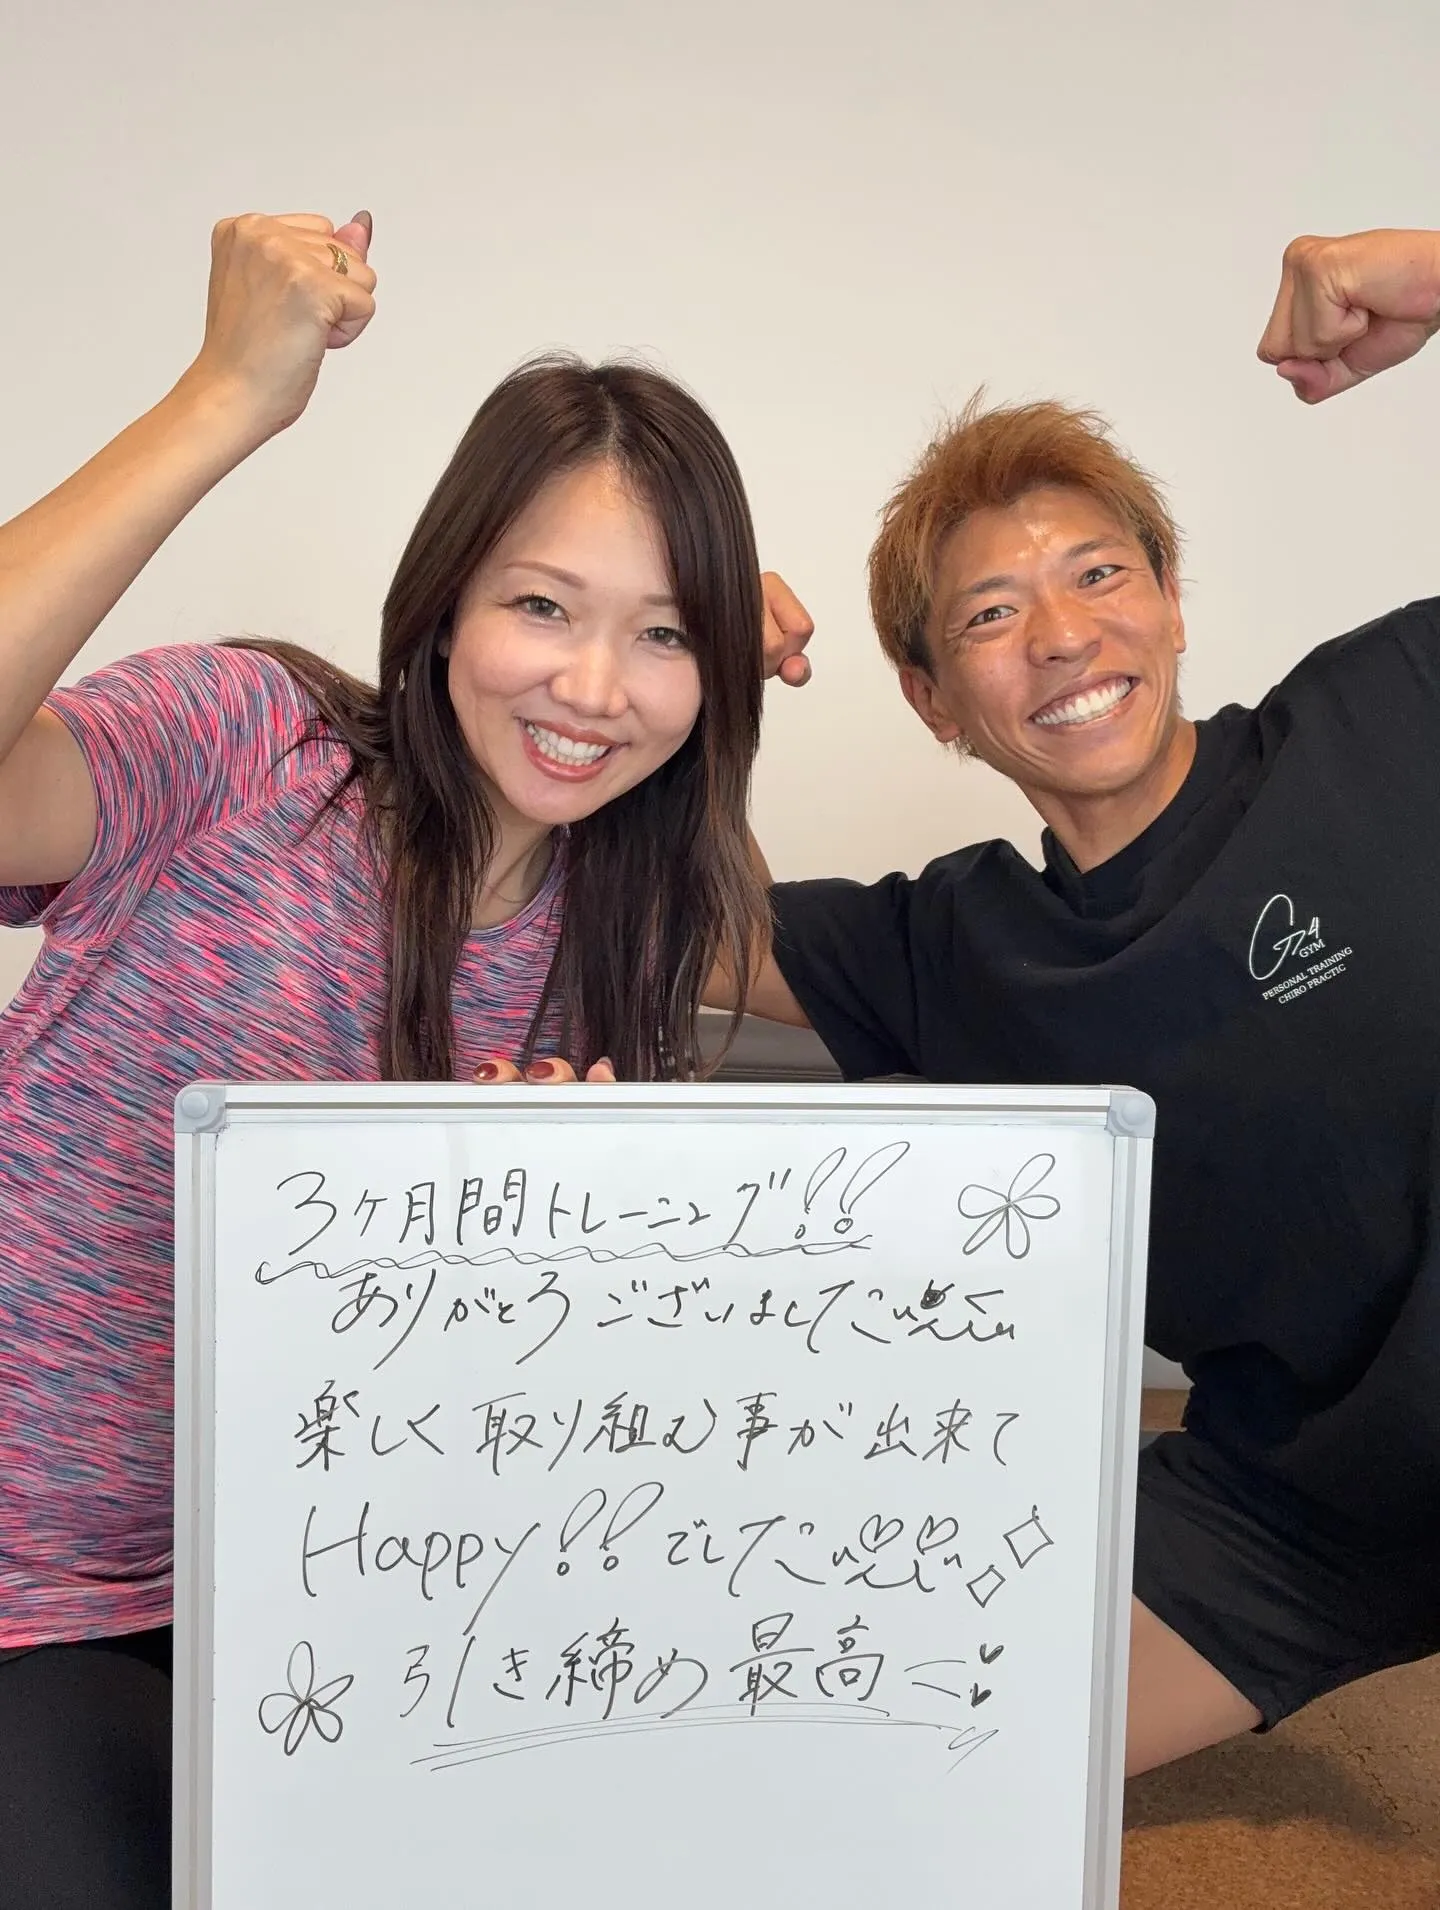 G24
GYM
PERSONAL TRAINING
CHIRO PRACTIC
3ヶ月間トレーニング!!
ありがとうございました
楽しく取り組む事が出来て
Happy!!でした
引き締め最高